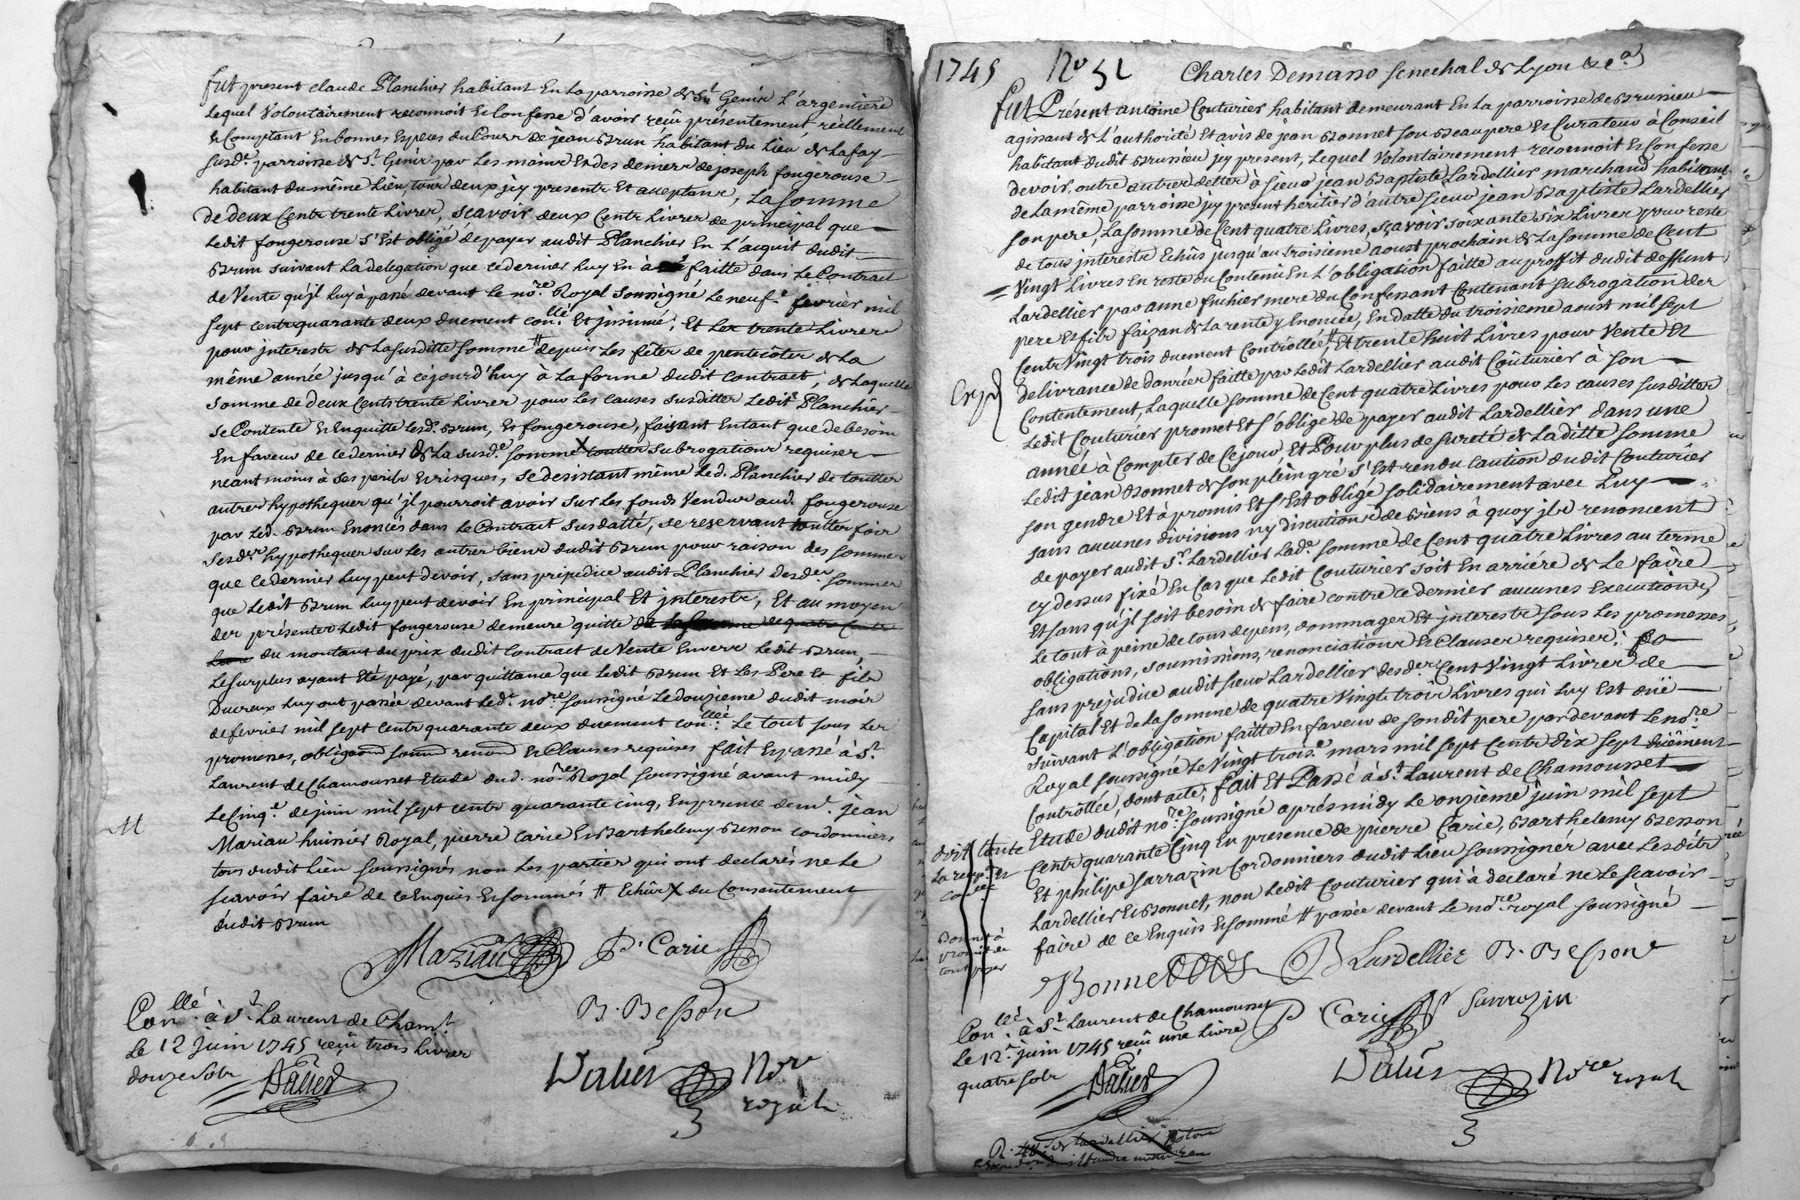 fut present claude Planchier habitant En La parroisse de St Genis L'argentiere
Lequel Volontairement reconnoit Et Confesse d'avoir reçu présentement réellement
Et Comptant En bonnes Especes du Cours de jean Brun habitant du Lieu de Lafay
susde parroisse de St Genis par Les mains Et des deniers de joseph fougerouse
habitant du même Lieu tous deux jcy presents Et acceptans, La somme
de deux Cents trente Livres, scavoir deux Cents Livres de principal que
Ledit fougerouse s'Est obligé de payer audit Planchier En L'acquit dudit
Brun suivant La delegation que ce dernier Luy En à faitte dans Le Contract
de Vente qu'jl Luy à passé devant Le nore Royal soussigné Le neufe fevrier mil
sept cents quarante deux duement conllé Et jnsinué; Et Les trente Livres
pour jnterests de La susditte somme # depuis Les fêtes de pentecôtes de La
même année jusqu'à cejourd'huy à La forme dudit contract, de Laquelle
somme de deux Cents trente Livres pour Les causes susdittes Ledit Planchier
se Contente Et Enquitte Lesd. Brun, Et fougerouse, faisant Entant que de besoin
En faveur de ce dernier de La susde somme X touttes subrogations requises
neant moins à ses perils Et risques, se desistant même Led. Planchier de touttes
autres hypotheques qu'jl pourroit avoir sur Les fonds Vendus aud. fougerouse
par Led. Brun Enoncés dans Le Contract susdatté, se reservant touttes fois
sesdes hypotheques sur Les autres biens dudit Brun pour raison des sommes
que ce dernier Luy peut devoir, sans préjudice audit Planchier desdes sommes
que Ledit Brun Luy peut devoir En principal Et jnterests, Et au moyen
des présentes Ledit fougerouse demeure quitte de La somme de quatre Cents
Livres du montant du prix dudit Contract de Vente Envers Ledit Brun,
Le surplus ayant Eté payé, par quittance que Ledit Brun Et Les Pere Et fils
Ducreux Luy ont passée devant Led. nore soussigné Le douzieme dudit mois
de fevrier mil sept cents quarante deux duement conllée Le tout sous Les
promesses, obligaons soumions renons Et Clauses requises fait Et passé à St
Laurent de Chamousset Etude dud. nore Royal soussigné avant midy
Le Cinqe de juin mil sept cents quarante cinq, En presence de mr jean
Maziau huissier Royal, pierre Carie Et Barthelemy Besson cordonniers
tous dudit Lieu soussignés non Les parties qui ont declarés ne Le
scavoir faire de ce Enquis Et sommés # Echûs X du Consentement
dudit Brun
M
Maziau P. Carie
B. Besson
Conllé à St Laurent de Chamt
Le 12 juin 1745 reçu trois Livres
douze sols
Dalier
Dalier Nore
royal
1745 No 51 Charles Demasso senechal de Lyon &ca
fut Présent antoine Couturier habitant demeurant En La parroisse de Brussieu
agissant de L'authorité Et avis de jean Bonnet son Beaupere Et Curateur à Conseil
habitant dudit Brussieu jcy present, Lequel Volontairement reconnoit Et Confesse
devoir outre autres dettes à sieur jean Baptiste Lardellier marchand habitant
de La même parroisse jcy present héritier d'autre sieur jean Baptiste Lardellier
son pere, La somme de Cent quatre Livres, scavoir soixante six Livres pour reste
de tous jnterests Echûs jusqu'au troisieme aoust prochain de La somme de Cent
Vingt Livres En reste du Contenu En L'obligation faitte au proffit dudit deffunt
Lardellier par anne fuchier mere du Confessant Contenant subrogation des
pere Et fils faizan de La rente y Enoncée, En datte du troisieme aoust mil sept
Cents Vingt trois duement Controllée # Et trente huit Livres pour Vente Et
delivrance de danrées faitte par Ledit Lardellier audit Coûturier à son
Contentement, Laquelle somme de Cent quatre Livres pour Les causes susdittes
Ledit Couturier promet Et s'oblige de payer audit Lardellier dans une
année à Compter de Ce jour, Et Pour plus de sureté de La ditte somme
Ledit jean Bonnet de son plein gré s'Est rendu Caution dudit Couturier
son gendre Et à promis Et s'Est obligé solidairement avec Luy
sans aucunes divisions ny discution de Biens à quoy jls renoncent
de payer audit sr Lardellier Lade somme de Cent quatre Livres au terme
cy dessus fixé En Cas que Ledit Couturier soit En arriére de Le faire
Et sans qu'jl soit besoin de faire contre ce dernier aucunes Executions
Le tout à peine de tous depens, dommages Et jnterests sous Les promesses
obligations, soumissions, renonciations Et Clauses requises;
sans préjudice audit sieur Lardellier desdes Cent Vingt Livres de
Capital Et de La somme de quatre Vingts trois Livres qui Luy Est düe
suivant L'obligation faitte En faveur de sondit pere par devant Le nore
Royal soussigné Le Vingt troise mars mil sept Cents dix sept duëment
Controllée, dont acte, fait Et Passé à St Laurent de Chamousset
Etude dudit nore soussigné aprés midy Le onzieme juin mil sept
Cents quarante Cinq En presence de pierre Carie, Barthélemy Besson
Et philipe sarrazin Cordonniers dudit Lieu soussignés avec Lesdits
Lardellier Et Bonnet, non Ledit Couturier qui à declaré ne Le scavoir
faire de ce Enquis Et sommé # passée devant Le nore royal soussigné
Expd
Bonnet B Lardellier B. Besson
P Carie sarrazin
Conllé à St Laurent de Chamousset
Le 12e juin 1745 reçu une Livre
quatre sols
Dalier
Dalier Nore
royal